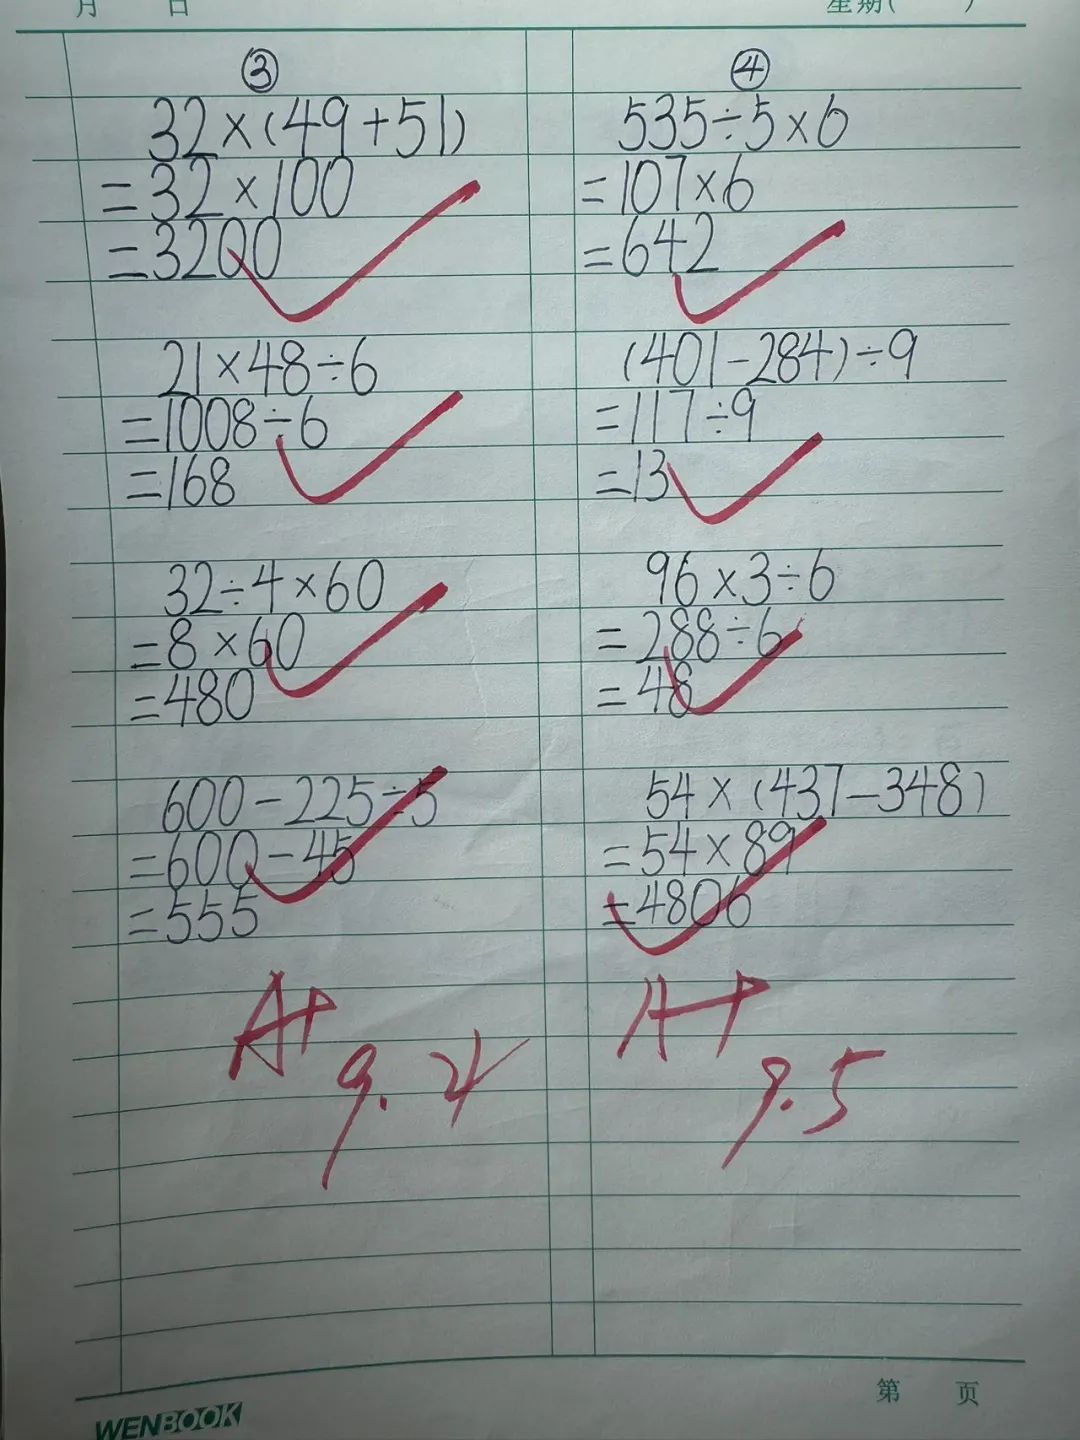 月 日 星期( )
③
32×(49+51)
=32×100
=3200
21×48÷6
=1008÷6
=168
32÷4×60
=8×60
=480
600-225÷5
=600-45
=555
A+
9.4
④
535÷5×6
=107×6
=642
(401-284)÷9
=117÷9
=13
96×3÷6
=288÷6
=48
54×(437-348)
=54×89
=4806
A+
9.5
第 页
WENBOOK